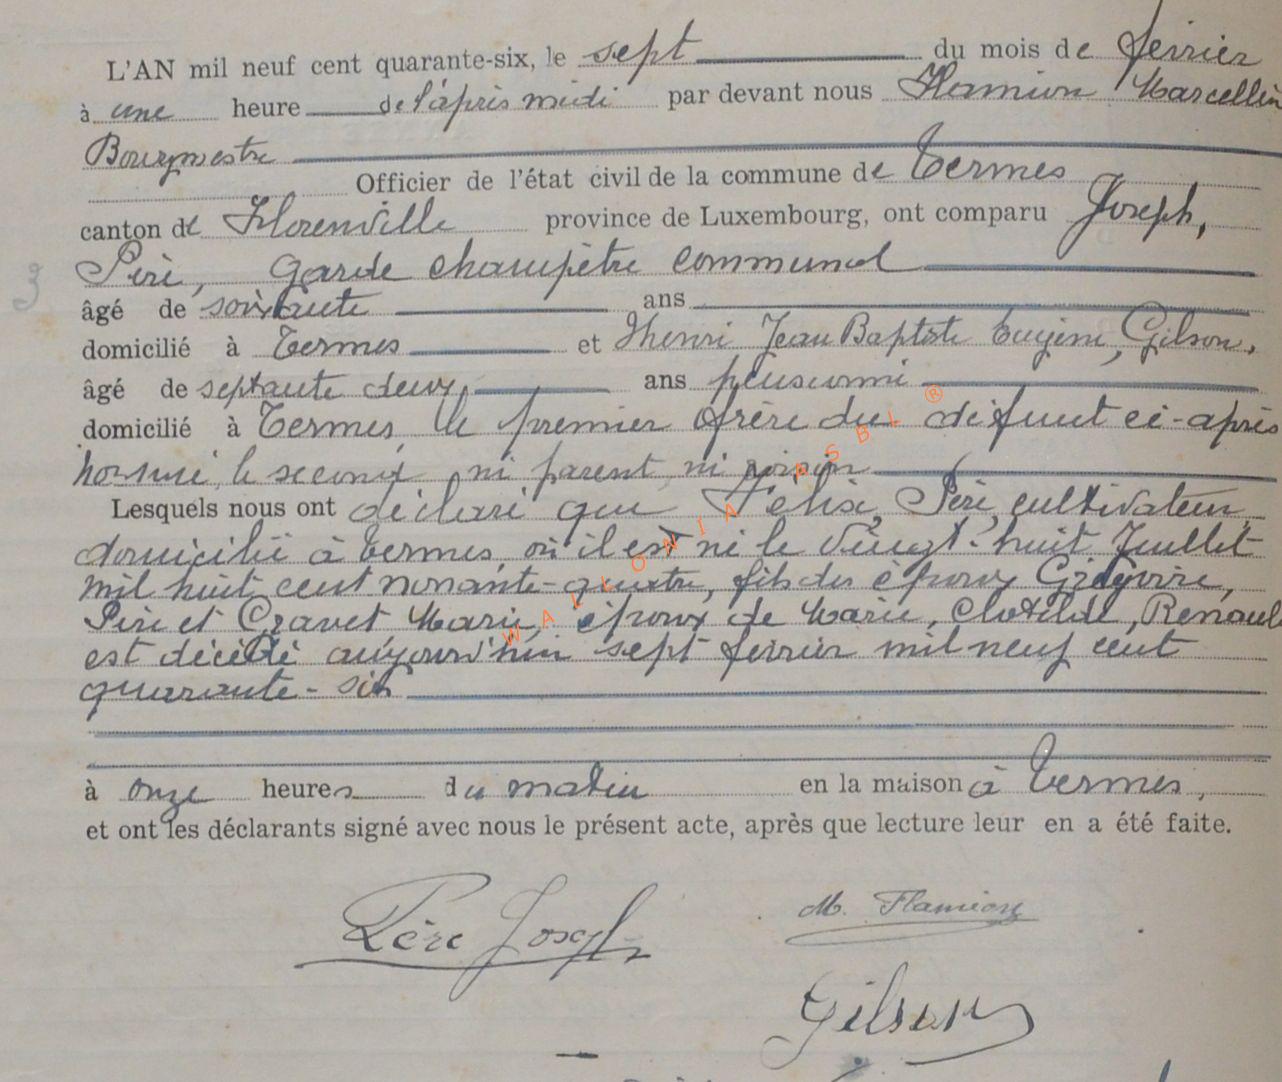 L'AN mil neuf cent quarante-six, le sept du mois de février
à une heure de l'après midi par devant nous Flamion Marcellin
Bourgmestre
Officier de l'état civil de la commune de Termes
canton de Florenville province de Luxembourg, ont comparu Joseph,
Péré, garde champêtre communal
3
âgé de soixante ans
domicilié à Termes et Henri Jean Baptiste Eugène, Gilson,
âgé de septante deux ans pensionné
domicilié à Termes, le premier frère du défunt ci-après
nommé, le second ni parent, ni voisin
Lesquels nous ont déclaré que Félix, Péré, cultivateur,
domicilié à Termes, où il est né le vingt-huit Juillet
mil huit cent nonante-quatre, fils des époux Grégoire,
Péré et Cravet Marie, époux de Marie, Clotilde, Renauld
est décédé aujourd'hui sept février mil neuf cent
quarante-six
à onze heures du matin en la maison à Termes,
et ont les déclarants signé avec nous le présent acte, après que lecture leur en a été faite.
Père Joseph M. Flamion
Gilson
WALLONIA ASBL ®